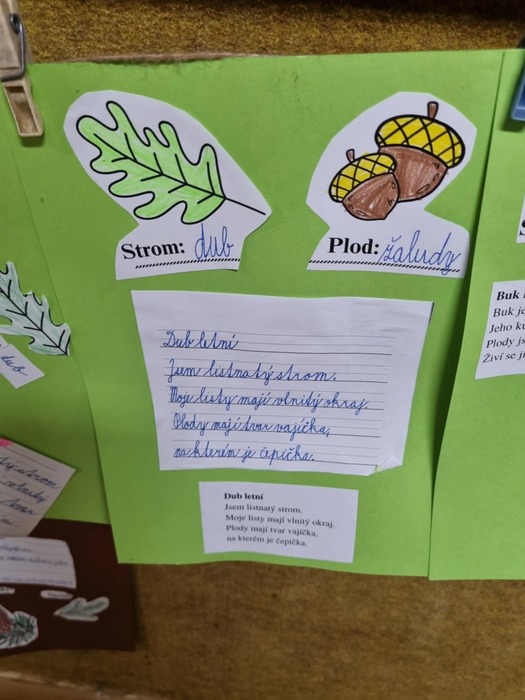 Strom: dub
Plod: žaludy
Dub letní
Jsem listnatý strom.
Moje listy mají vlnitý okraj.
Plody mají tvar vajíčka,
na kterém je čepička.
Dub letní
Jsem listnatý strom.
Moje listy mají vlnitý okraj.
Plody mají tvar vajíčka,
na kterém je čepička.
dub
strom
Buk
Buk je
Jeho
Plody
Živí se